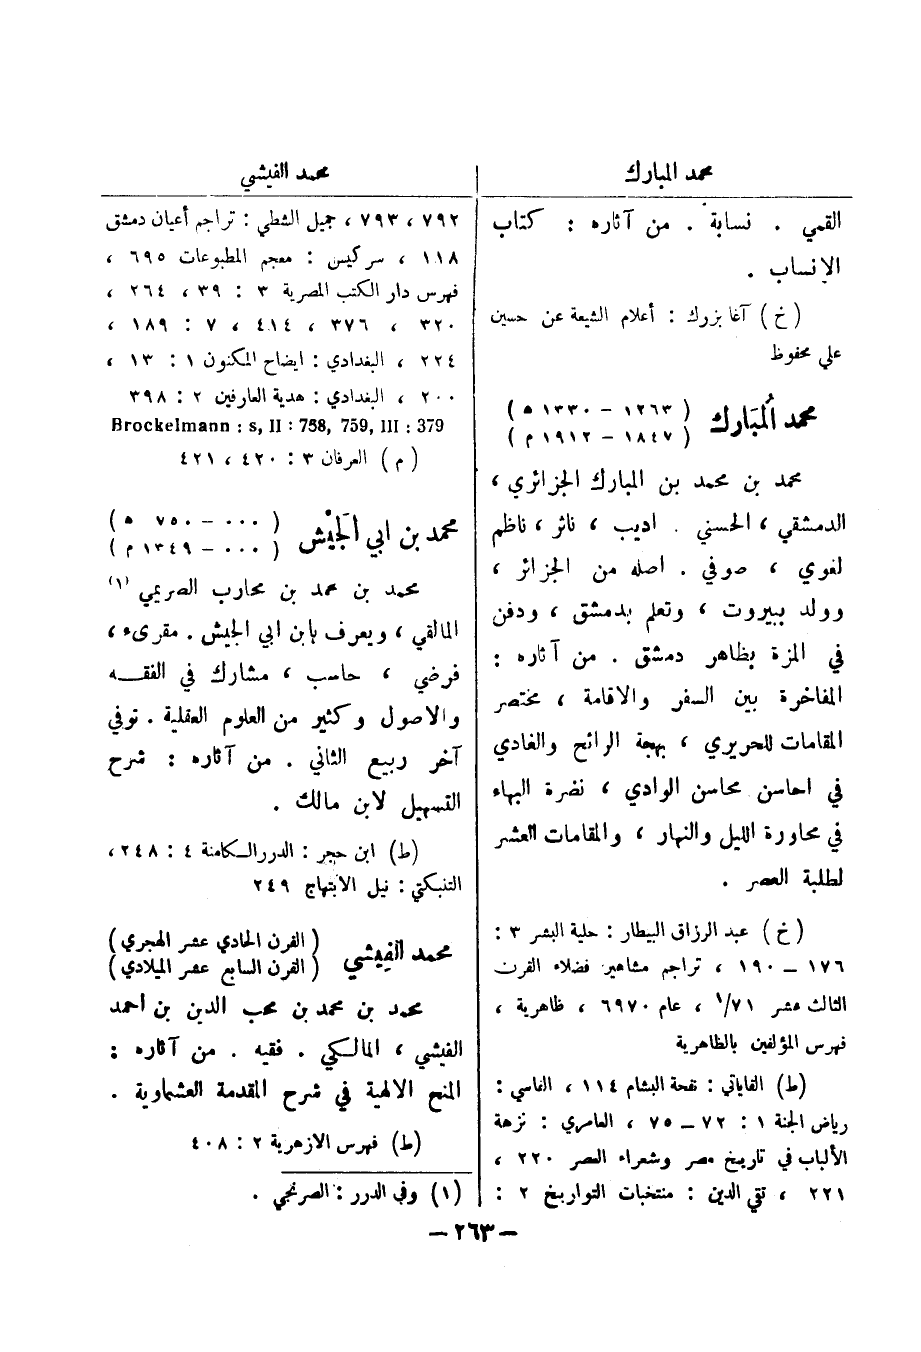 محمد المبارك
محمد الفيشي
القمي . نسابة . من آثاره : كتاب
الانساب .
(خ) آغا بزرك : أعلام الشيعة عن حسين
علي محفوظ
محمد المُبَارك
( ١٢٦٣ – ١٣٣٠ ه )
( ١٨٤٧ – ١٩١٢ م )
محمد بن محمد بن المبارك الجزائري ،
الدمشقي ، الحسني . اديب ، ناثر ، ناظم
لغوي ، صوفي . اصله من الجزائر ،
وولد ببيروت ، وتعلم بدمشق ، ودفن
في المزة بظاهر دمشق . من آثاره :
المفاخرة بين السفر والاقامة ، مختصر
المقامات للحريري ، بهجة الرائح والغادي
في احاسن محاسن الوادي ، نضرة البهاء
في محاورة الليل والنهار ، والمقامات العشر
لطلبة العصر .
(خ) عبد الرزاق البيطار : حلية البشر ٣ :
١٧٦ – ١٩٠ ، تراجم مشاهير فضلاء القرن
الثالث عشر ٧١/١ ، عام ٦٩٧٠ ، ظاهرية ،
فهرس المؤلفين بالظاهرية
(ط) القاياتي : نفحة البشام ١١٤ ، الفاسي :
رياض الجنة ١ : ٧٢ – ٧٥ ، العامري : نزهة
الألباب في تاريخ مصر وشعراء العصر ٢٢٠ ،
٢٢١ ، تقي الدين : منتخبات التواريخ ٢ :
٧٩٢ ، ٧٩٣ ، جميل الشطي : تراجم أعيان دمشق
١١٨ ، سركيس : معجم المطبوعات ٦٩٥ ،
فهرس دار الكتب المصرية ٣ : ٣٩ ، ٢٦٤ ،
٣٢٠ ، ٣٧٦ ، ٤١٤ ، ٧ : ١٨٩ ،
٢٢٤ ، البغدادي : ايضاح المكنون ١ : ١٣ ،
٢٠٠ ، البغدادي : هدية العارفين ٢ : ٣٩٨
Brockelmann : s, II : 758, 759, III : 379
(م) العرفان ٣ : ٤٢٠ ، ٤٢١
محمد بن ابي الجَيْش
( ٠٠٠ – ٧٥٠ ه )
( ٠٠٠ – ١٣٤٩ م )
محمد بن محمد بن محارب الصريمي (١)
المالقي ، ويعرف بابن ابي الجيش . مقرىء ،
فرضي ، حاسب ، مشارك في الفقـــه
والاصول وكثير من العلوم العقلية . توفي
آخر ربيع الثاني . من آثاره : شرح
التسهيل لابن مالك .
(ط) ابن حجر : الدرر الكامنة ٤ : ٢٤٨ ،
التنبكتي : نيل الابتهاج ٢٤٩
محمد الفِيشي
( القرن الحادي عشر الهجري )
( القرن السابع عشر الميلادي )
محمد بن محمد بن محب الدين بن احمد
الفيشي ، المالكي . فقيه . من آثاره :
المنح الالهية في شرح المقدمة العشماوية .
(ط) فهرس الازهرية ٢ : ٤٠٨
(١) وفي الدرر : الصرنجي .
– ٢٦٣ –